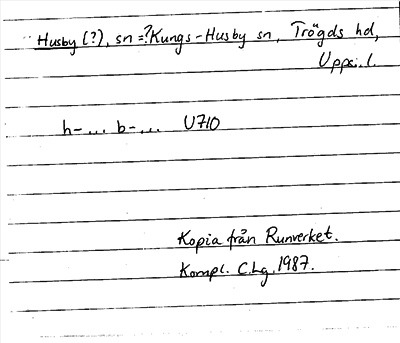 Husby (?), sn =? Kungs-Husby sn, Trögds hd,
Upps. l.
h-... b-... U710
Kopia från Runverket.
Kompl. C.Lg. 1987.